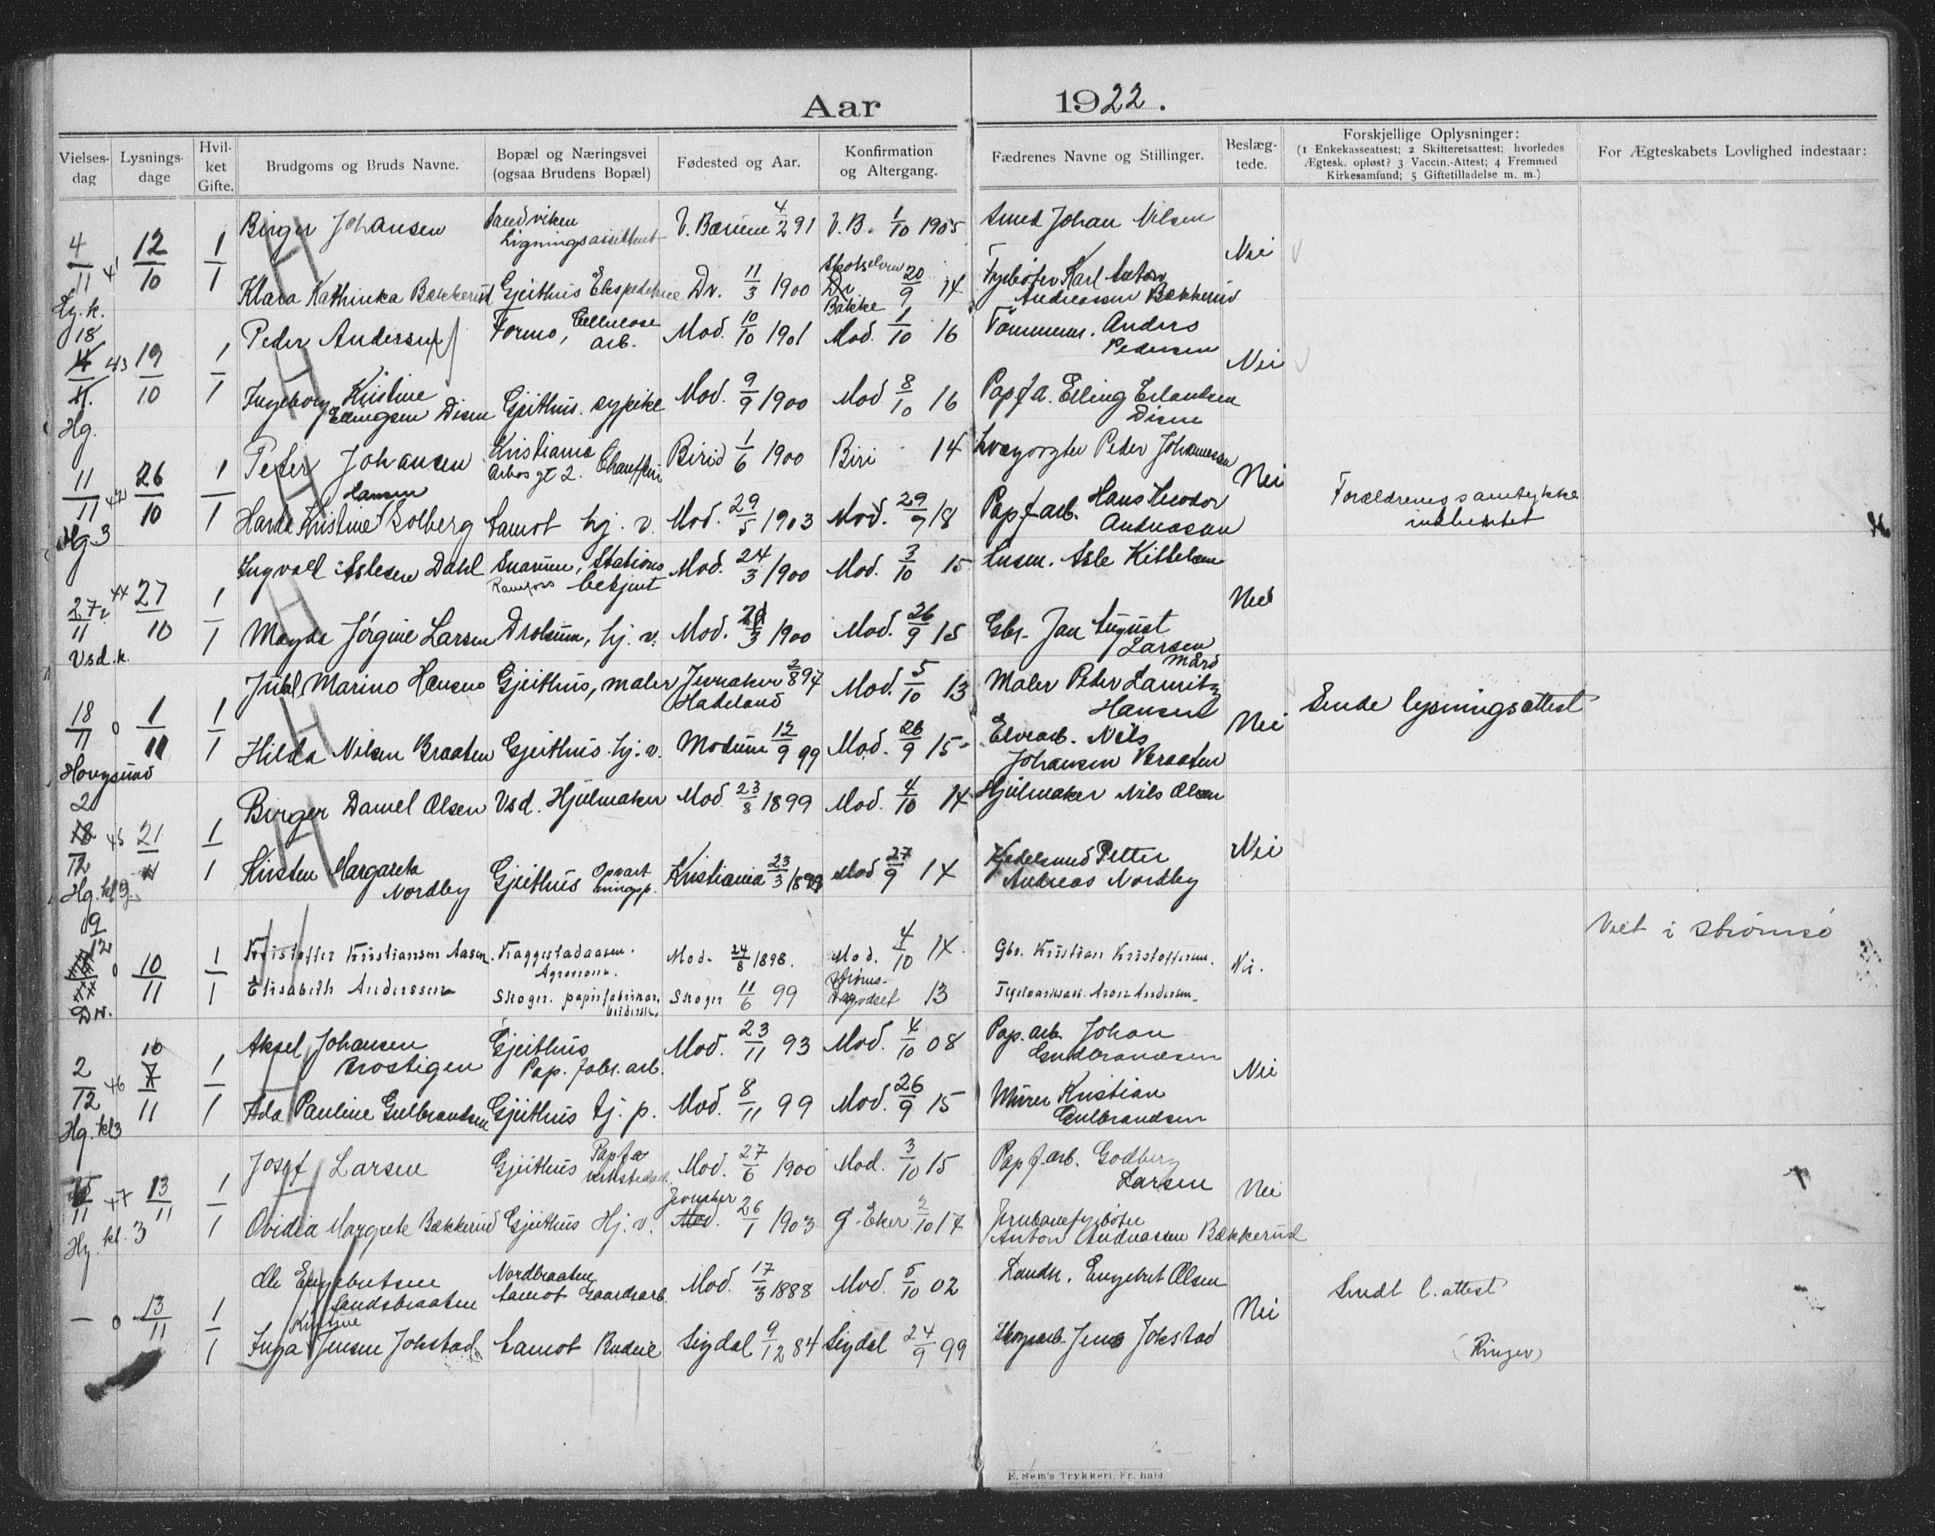 Aar 1922.
Vielses-dag
Lysnings-dage
Hvil-ket Gifte.
Brudgoms og Bruds Navne.
Bopæl og Næringsvei (ogsaa Brudens Bopæl)
Fødested og Aar.
Konfirmation og Altergang.
Fædrenes Navne og Stillinger.
Beslæg-tede.
Forskjellige Oplysninger: (1 Enkekasseattest; 2 Skifteretsattest; hvorledes Ægtesk. opløst? 3 Vaccin.-Attest; 4 Fremmed Kirkesamfund; 5 Giftetilladelse m. m.)
For Ægteskabets Lovlighed indestaar:
4/11 41 12/10 1/1 Birger Johansen Sandviken Ligningsassistent V. Bærum 4/2 91 V. B. 1/10 1905 Smed Johan Nilsen Nei
Klara Kathinka Bækkerud Gjeithus Ekspeditrice Dr. 11/3 1900 Skotselven Bakke 20/9 14 Fyrbøter Karl Anton Andreassen Bækkerud
18/11 43 19/10 1/1 Peder Andersen Formo, Cellulose arb. Mod. 10/10 1901 Mod. 1/10 16 Tømmerm. Anders Pedersen Nei
Hg. Ingeborg Kristine Ellingsen Disen Gjeithus. sypike Mod. 9/9 1900 Mod 8/10 16 Papfa. Elling Erlandsen Disen
11/11 42 26/10 1/1 Peter Johansen Kristiania Arbosgt 2. Chauffør Biri 1/6 1900 Biri 14 Peder Johannessen Nei Forældrenes samtykke
Hg 3 Kristine Hansen Solberg Aamot hj. v. Mod. 29/5 1903 Mod. 29/9 18 Papfarb. Hans Teodor Andreasen
27/11 44 27/10 1/1 Ingvald Aslesen Dahl Snarum, Stations betjent Ramfoss Mod. 24/3 1900 Mod. 3/10 15 Husm. Asle Kittelsen Nei
Vsd. k. Magda Jørgine Larsen Drolsum, hj. v. Mod. 3 1900 Mod. 26/9 15 Gbr. Jan August Larsen Mård
18/11 0 1/11 1/1 Juhl Marino Hansen Gjeithus, maler Jevnaker Hadeland 2/8 94 Mod. 5/10 13 Maler Peder Lauritz Hansen Nei Sende lysningsattest
Hovgsund Hilda Nilsen Braaten Gjeithus hj. v. Modum 12/9 99 Mod. 26/9 15 Elvearb. Nils Johansen Braaten
2/12 45 21/11 1/1 Birger Daniel Olsen Vsd. Hjulmaker Mod 23/8 1899 Mod. 4/10 14 Hjulmaker Nils Olsen Nei
Hg. kl 9 Kirsten Margarete Nordby Gjeithus Opvartningsp. Kristiania 23/3 1899 Mod 27/9 14 Kjedelsmed Petter Andreas Nordby
9/12 0 10/11 1/1 Kristoffer Kristiansen Aasen Kaggestadaasen. Agronom. Mod. 24/8 1898. Mod. 4/10 14. Gbr. Kristian Kristoffersen. Nei. Viet i Strømsø
Dr. Elisabeth Anderssen Skoger. papirfabrikarbeiderske, Skoger 11/6 99 Strømsgodset 13 Teglverksarb. Aron Andersen.
2/12 46 10 7/11 1/1 Aksel Johansen Krostigen Gjeithus Pap. fabr. arb. Mod. 23/11 93 Mod. 4/10 08 Pap. arb. Johan Gudbrandsen Nei
Hg. kl 3 Ada Pauline Gulbrandsen Gjeithus tj. p. Mod. 8/11 99 Mod. 26/9 15 Murer Kristian Gulbrandsen
11 47 13/11 1/1 Josef Larsen Gjeithus Papfa Mod. 27/6 1900 Mod. 3/10 15 Papfarb. Godberg Larsen Nei
Hg. kl. 3 Ovidia Margrete Bækkerud Gjeithus Hj. v. Jevnaker Mod. 26/1 1903 Ø. Eker 2/10 17 Jernbanefyrbøter Anton Andreassen Bækkerud
— 0 13/11 1/1 Ole Engebretsen Sandsbraaten Nordbraaten Aamot Gaardsarb. Mod. 17/3 1888 Mod. 5/10 02 Landh. Engebret Olsen Nei Sendt l. attest
Inga Kristine Jensen Jokstad Aamot Budeie Sigdal 9/12 84 Sigdal 24/9 99 Skogsarb. Jens Jokstad (Ringer)
E. Sem's Trykkeri, Fr. hald.